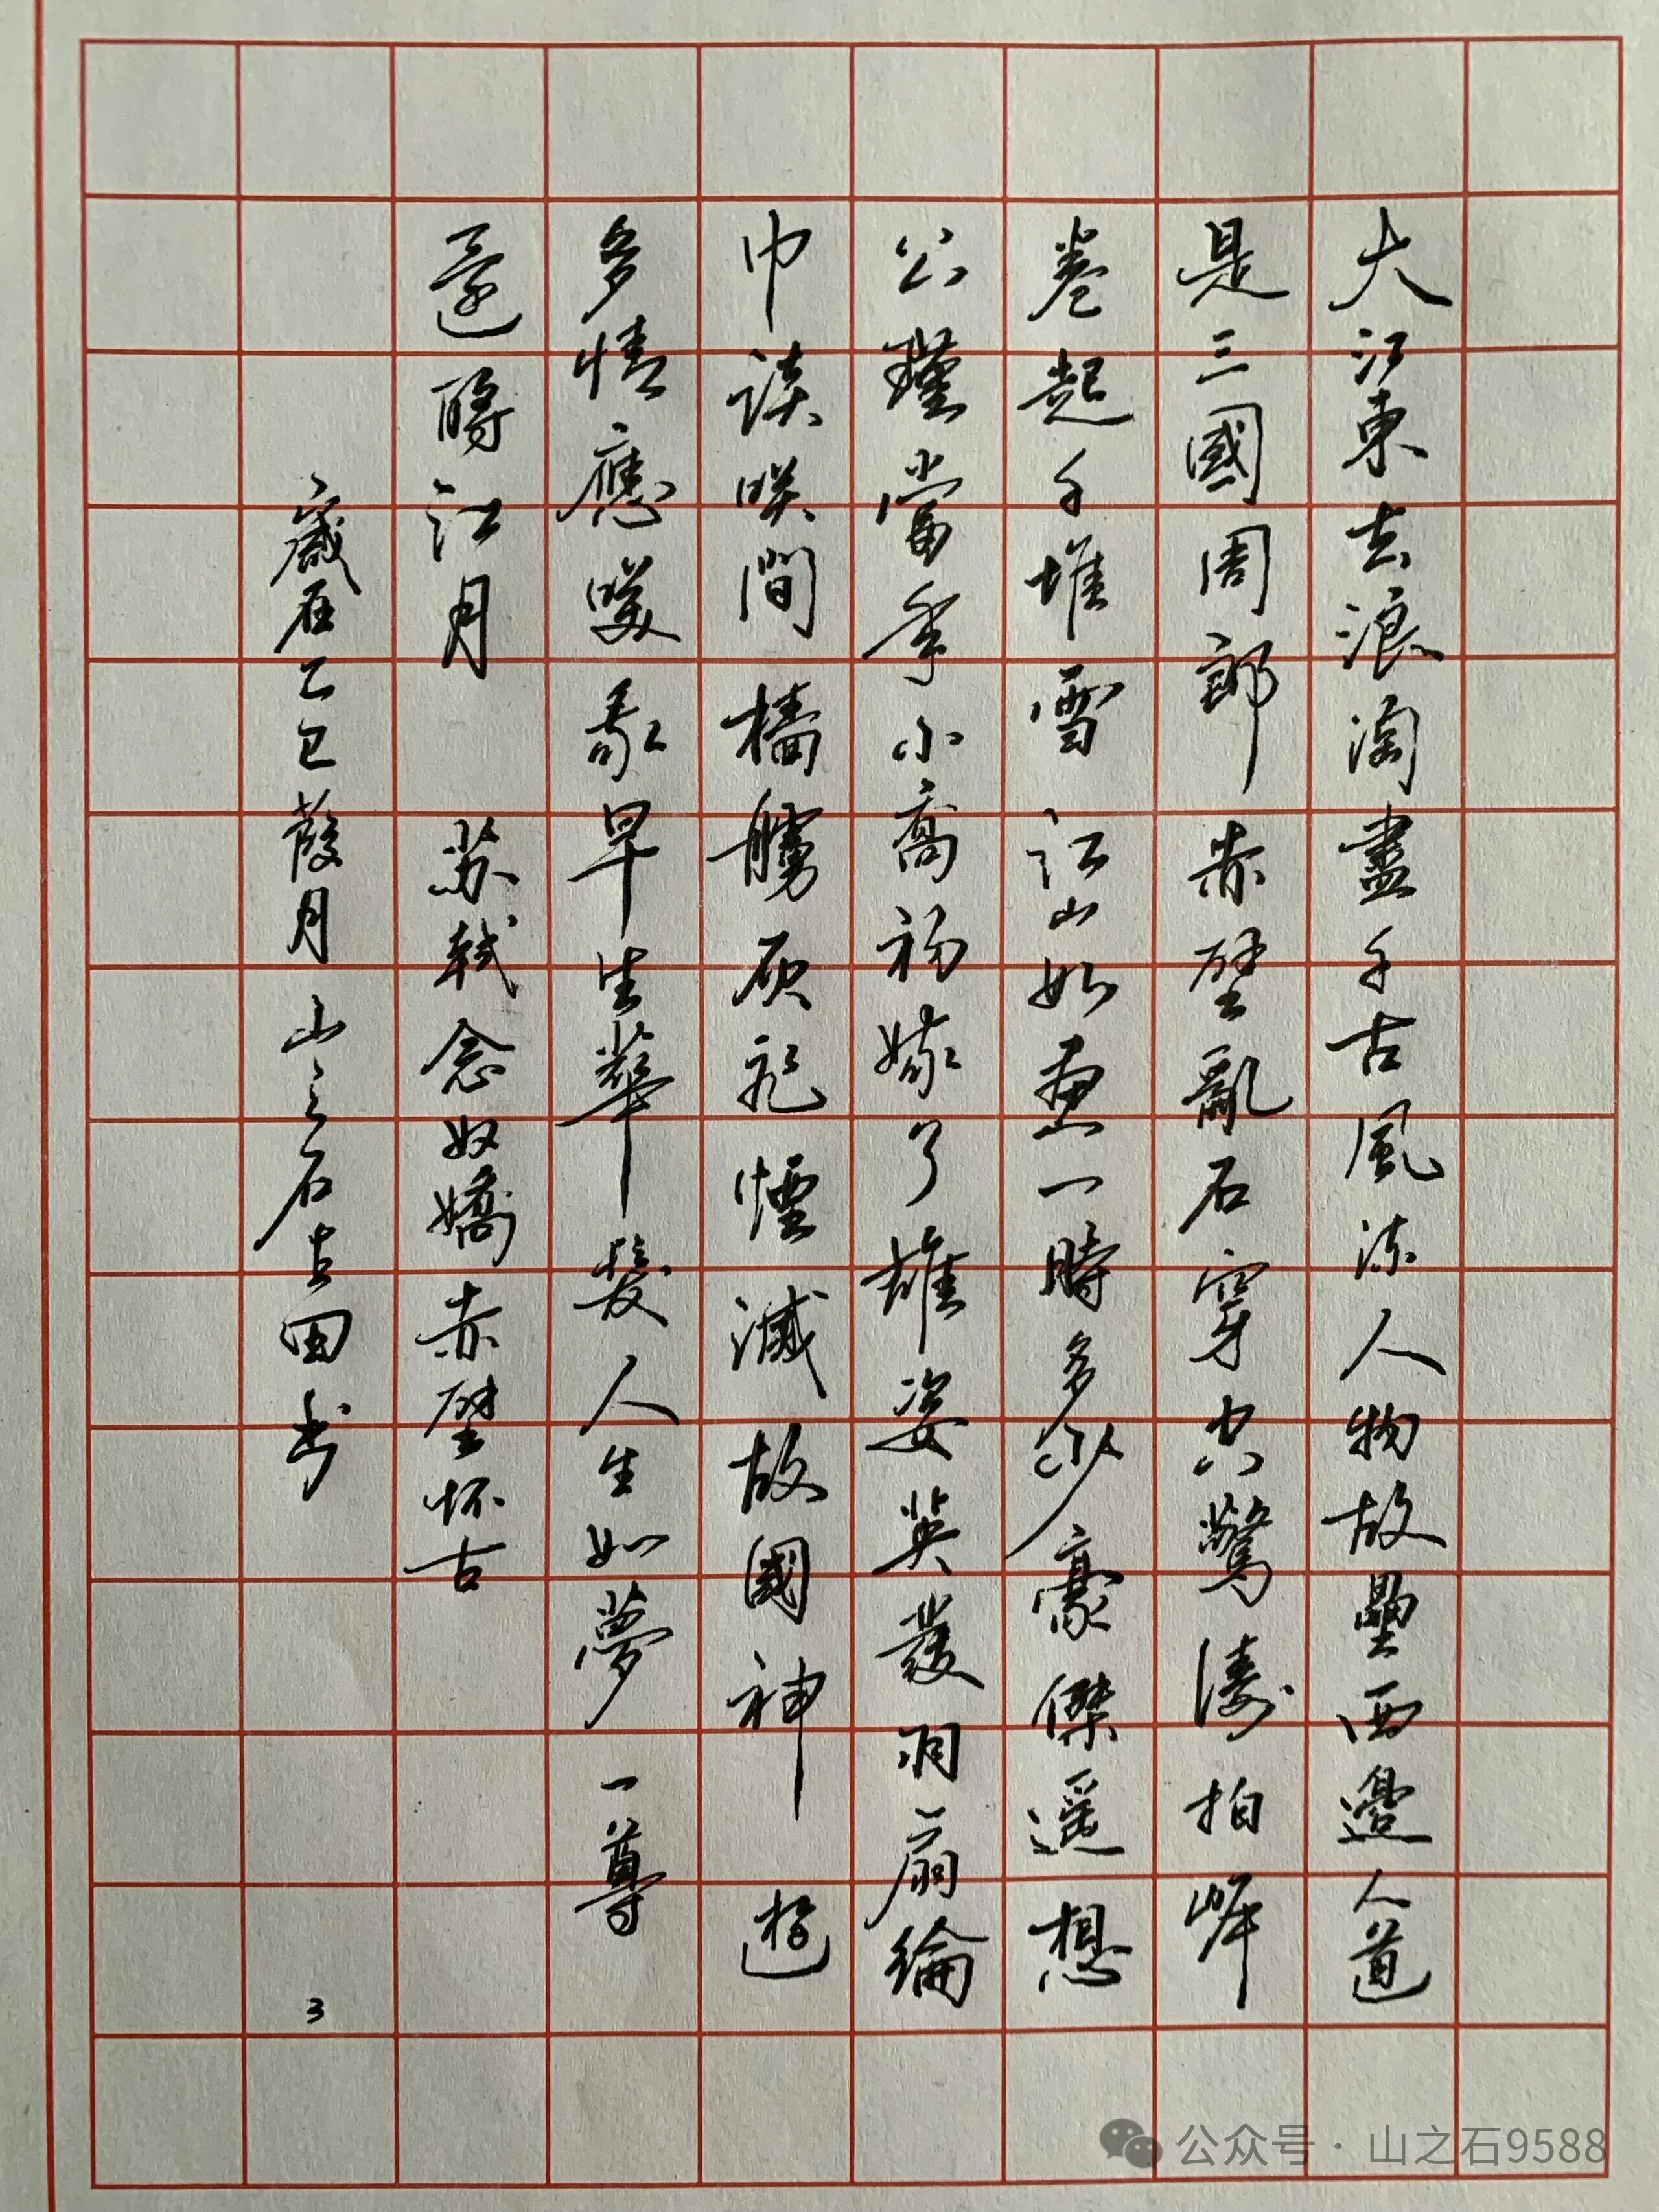 大江東去浪淘盡千古風流人物故壘西邊人道
是三國周郎赤壁亂石穿空驚濤拍岸
卷起千堆雪江山如畫一時多少豪傑遥想
公瑾當年小喬初嫁了雄姿英發羽扇綸
巾談笑間檣艣灰飛煙滅故國神遊
多情應笑我早生華髮人生如夢一尊
還酹江月 苏軾念奴嬌赤壁怀古
歲在乙巳葭月山之石古田书
3
公众号·山之石9588